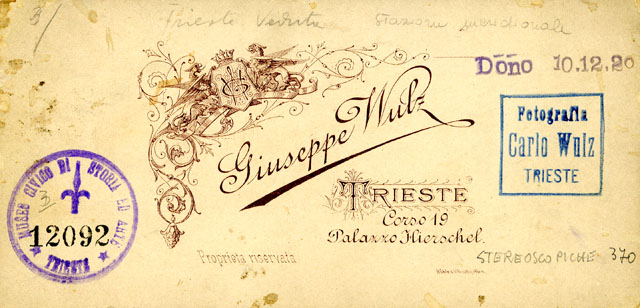 3/ Trieste veduta stazione meridionale
Dōno 10.12.20
Giuseppe Wulz
Fotografia
Carlo Wulz
TRIESTE
TRIESTE
Corso 19
Palazzo Hierschel.
MUSEO CIVICO DI STORIA ED ARTE
3
12092
TRIESTE
Proprietà riservata
STEREOSCOPICHE 370